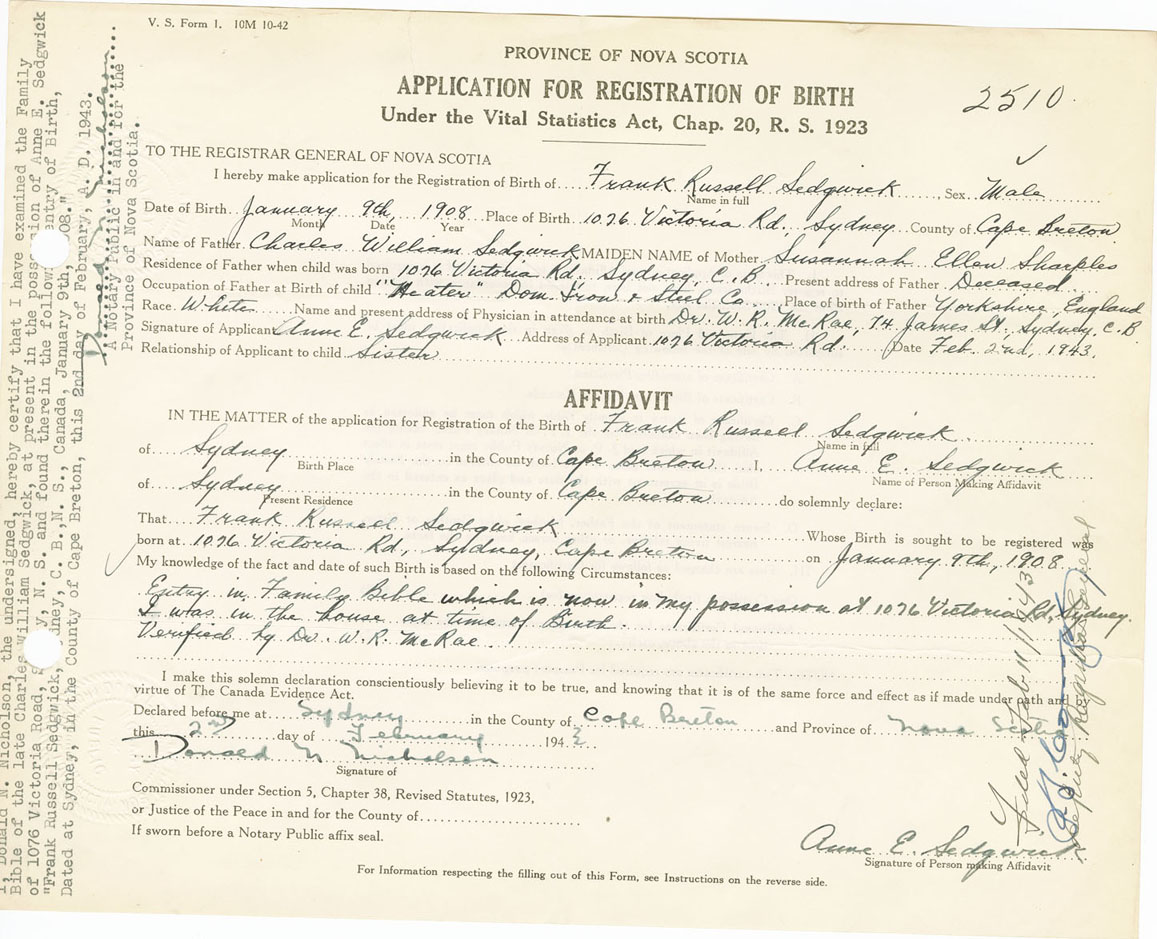 V. S. Form 1. 10M 10-42
PROVINCE OF NOVA SCOTIA
APPLICATION FOR REGISTRATION OF BIRTH
2510.
Under the Vital Statistics Act, Chap. 20, R. S. 1923
TO THE REGISTRAR GENERAL OF NOVA SCOTIA
I hereby make application for the Registration of Birth of Frank Russell Sedgwick, Sex Male
Name in full
Date of Birth January 9th, 1908 Place of Birth 1076 Victoria Rd., Sydney County of Cape Breton
Month Date Year
Name of Father Charles William Sedgwick MAIDEN NAME of Mother Susannah Ellen Sharples
Residence of Father when child was born 1076 Victoria Rd, Sydney, C. B. Present address of Father Deceased
Occupation of Father at Birth of child "Heater" Dom. Iron & Steel Co. Place of birth of Father Yorkshire, England
Race White Name and present address of Physician in attendance at birth Dr. W. R. McRae, 74 James St., Sydney, C. B
Signature of Applicant Anne E. Sedgwick Address of Applicant 1076 Victoria Rd. Date Feb. 2nd, 1943.
Relationship of Applicant to child Sister
AFFIDAVIT
IN THE MATTER of the application for Registration of the Birth of Frank Russell Sedgwick
Name in full
of Sydney in the County of Cape Breton I, Anne E. Sedgwick
Birth Place Name of Person Making Affidavit
of Sydney in the County of Cape Breton do solemnly declare:
Present Residence
That Frank Russell Sedgwick Whose Birth is sought to be registered was
born at 1076 Victoria Rd, Sydney, Cape Breton on January 9th, 1908
My knowledge of the fact and date of such Birth is based on the following Circumstances:
Entry in Family Bible which is now in my possession at 1076 Victoria Rd, Sydney.
I was in the house at time of Birth.
Verified by Dr. W. R. McRae.
I make this solemn declaration conscientiously believing it to be true, and knowing that it is of the same force and effect as if made under oath and by
virtue of The Canada Evidence Act.
Declared before me at Sydney in the County of Cape Breton and Province of Nova Scotia
this 2nd day of February 194
Donald N Nicholson
Signature of
Commissioner under Section 5, Chapter 38, Revised Statutes, 1923,
or Justice of the Peace in and for the County of
If sworn before a Notary Public affix seal.
Anne E. Sedgwick
Signature of Person making Affidavit
For Information respecting the filling out of this Form, see Instructions on the reverse side.
I, Donald N. Nicholson, the undersigned, hereby certify that I have examined the Family
Bible of the late Charles William Sedgwick, at present in the possession of Anne E. Sedgwick
of 1076 Victoria Road, N. S. and found therein the following entry of Birth,
"Frank Russell Sedgwick, Sydney, C. B., N. S., Canada, January 9th, 1908."
Dated at Sydney, in the County of Cape Breton, this 2nd day of February, A. D. 1943.
Donald N Nicholson
A Notary Public in and for the
Province of Nova Scotia.
Filed Feb 11/1943
Deputy Registrar General